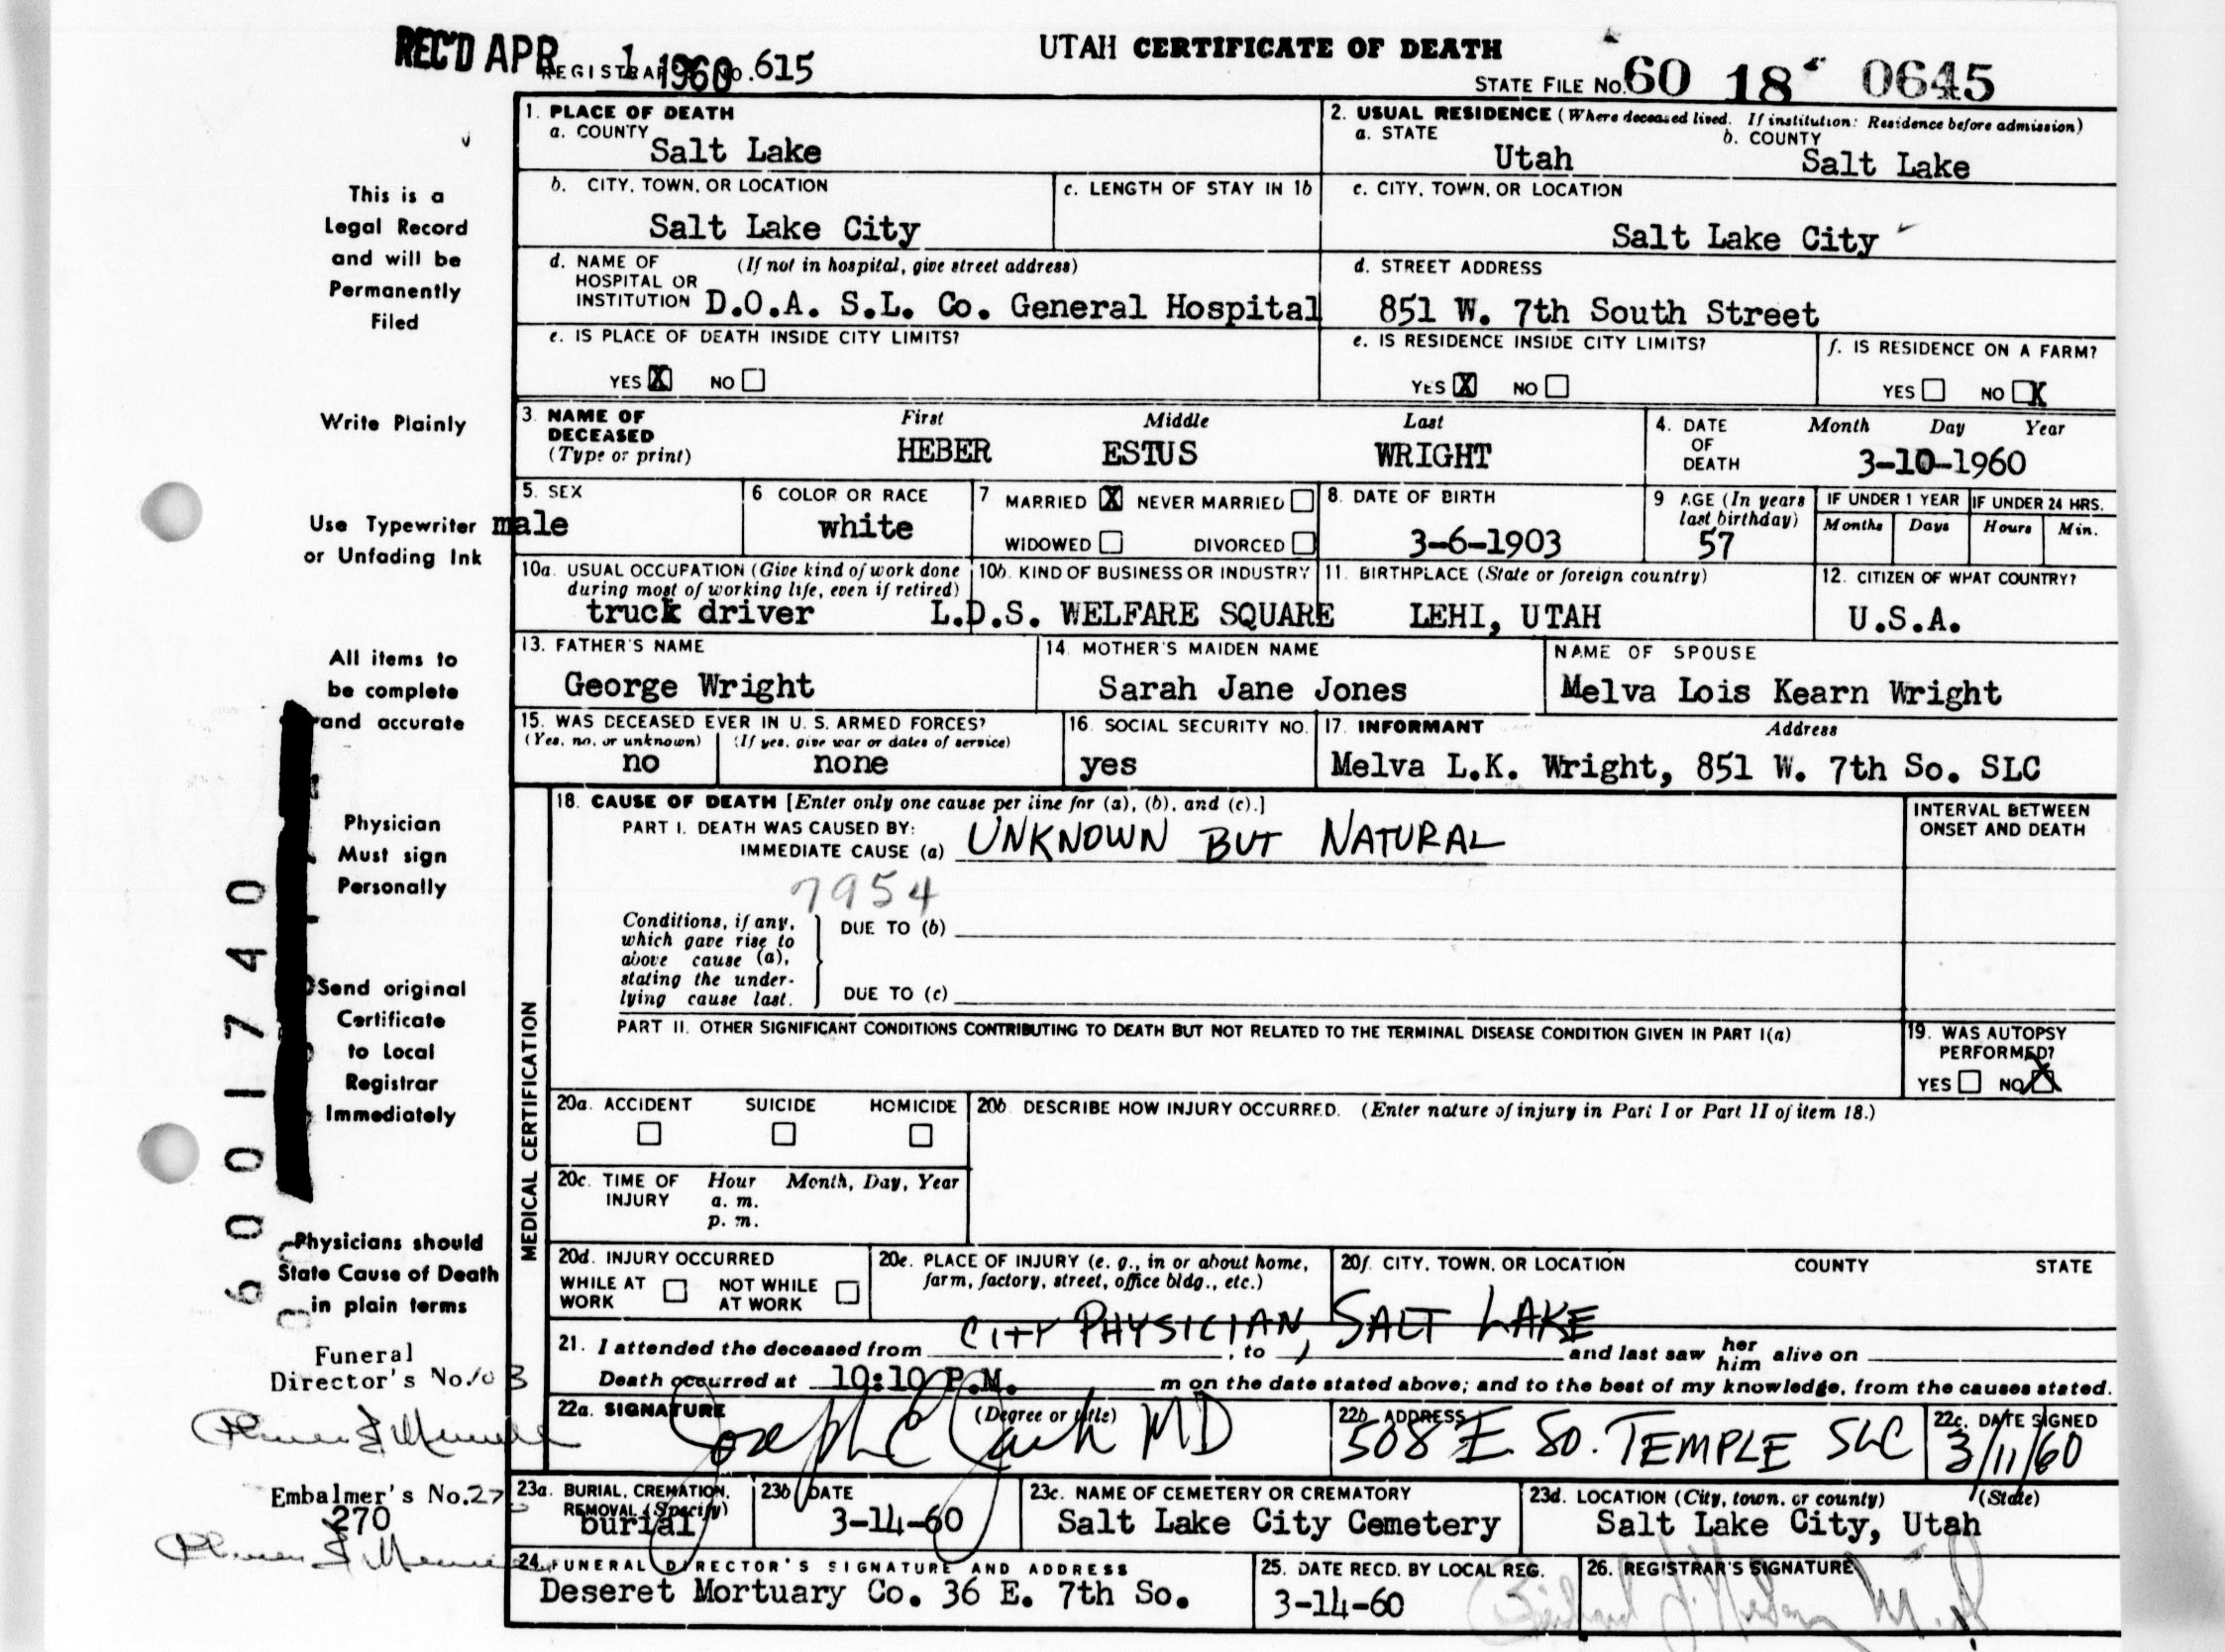 REC'D APR 1 1960
REGISTRAR'S NO. 615
UTAH CERTIFICATE OF DEATH
STATE FILE NO. 60 18 0645
1. PLACE OF DEATH
a. COUNTY
Salt Lake
2. USUAL RESIDENCE (Where deceased lived. If institution: Residence before admission)
a. STATE
Utah
b. COUNTY
Salt Lake
b. CITY, TOWN, OR LOCATION
Salt Lake City
c. LENGTH OF STAY IN 1b
c. CITY, TOWN, OR LOCATION
Salt Lake City
d. NAME OF HOSPITAL OR INSTITUTION
(If not in hospital, give street address)
D.O.A. S.L. Co. General Hospital
d. STREET ADDRESS
851 W. 7th South Street
e. IS PLACE OF DEATH INSIDE CITY LIMITS?
YES X NO
e. IS RESIDENCE INSIDE CITY LIMITS?
YES X NO
f. IS RESIDENCE ON A FARM?
YES NO X
3. NAME OF DECEASED (Type or print)
First Middle Last
HEBER ESTUS WRIGHT
4. DATE OF DEATH
Month Day Year
3-10-1960
5. SEX
male
6 COLOR OR RACE
white
7 MARRIED X NEVER MARRIED
WIDOWED DIVORCED
8. DATE OF BIRTH
3-6-1903
9 AGE (In years last birthday)
57
IF UNDER 1 YEAR
Months Days
IF UNDER 24 HRS.
Hours Min.
10a. USUAL OCCUPATION (Give kind of work done during most of working life, even if retired)
truck driver
10b. KIND OF BUSINESS OR INDUSTRY
L.D.S. WELFARE SQUARE
11. BIRTHPLACE (State or foreign country)
LEHI, UTAH
12. CITIZEN OF WHAT COUNTRY?
U.S.A.
13. FATHER'S NAME
George Wright
14. MOTHER'S MAIDEN NAME
Sarah Jane Jones
NAME OF SPOUSE
Melva Lois Kearn Wright
15. WAS DECEASED EVER IN U. S. ARMED FORCES?
(Yes, no, or unknown) (If yes, give war or dates of service)
no none
16. SOCIAL SECURITY NO.
yes
17. INFORMANT Address
Melva L.K. Wright, 851 W. 7th So. SLC
MEDICAL CERTIFICATION
18. CAUSE OF DEATH [Enter only one cause per line for (a), (b), and (c).]
PART I. DEATH WAS CAUSED BY:
IMMEDIATE CAUSE (a) UNKNOWN BUT NATURAL
INTERVAL BETWEEN ONSET AND DEATH
7954
Conditions, if any, which gave rise to above cause (a), stating the underlying cause last.
DUE TO (b)
DUE TO (c)
PART II. OTHER SIGNIFICANT CONDITIONS CONTRIBUTING TO DEATH BUT NOT RELATED TO THE TERMINAL DISEASE CONDITION GIVEN IN PART I(a)
19. WAS AUTOPSY PERFORMED?
YES NO X
20a. ACCIDENT SUICIDE HOMICIDE
20b DESCRIBE HOW INJURY OCCURRED. (Enter nature of injury in Part I or Part II of item 18.)
20c. TIME OF INJURY
Hour Month, Day, Year
a. m.
p. m.
20d. INJURY OCCURRED
WHILE AT WORK NOT WHILE AT WORK
20e. PLACE OF INJURY (e. g., in or about home, farm, factory, street, office bldg., etc.)
20f. CITY, TOWN, OR LOCATION COUNTY STATE
CITY PHYSICIAN, SALT LAKE
21. I attended the deceased from , to and last saw her him alive on
Death occurred at 10:10 P.M. m on the date stated above; and to the best of my knowledge, from the causes stated.
22a. SIGNATURE (Degree or title)
Joseph C Clark MD
22b. ADDRESS
508 E SO. TEMPLE SLC
22c. DATE SIGNED
3/11/60
23a. BURIAL, CREMATION, REMOVAL (Specify)
burial
23b DATE
3-14-60
23c. NAME OF CEMETERY OR CREMATORY
Salt Lake City Cemetery
23d. LOCATION (City, town, or county) (State)
Salt Lake City, Utah
24. FUNERAL DIRECTOR'S SIGNATURE AND ADDRESS
Deseret Mortuary Co. 36 E. 7th So.
25. DATE RECD. BY LOCAL REG.
3-14-60
26. REGISTRAR'S SIGNATURE
This is a
Legal Record
and will be
Permanently
Filed
Write Plainly
Use Typewriter
or Unfading Ink
All items to
be complete
and accurate
Physician
Must sign
Personally
Send original
Certificate
to Local
Registrar
Immediately
Physicians should
State Cause of Death
in plain terms
Funeral
Director's No. 103
Embalmer's No. 27
270
6001740